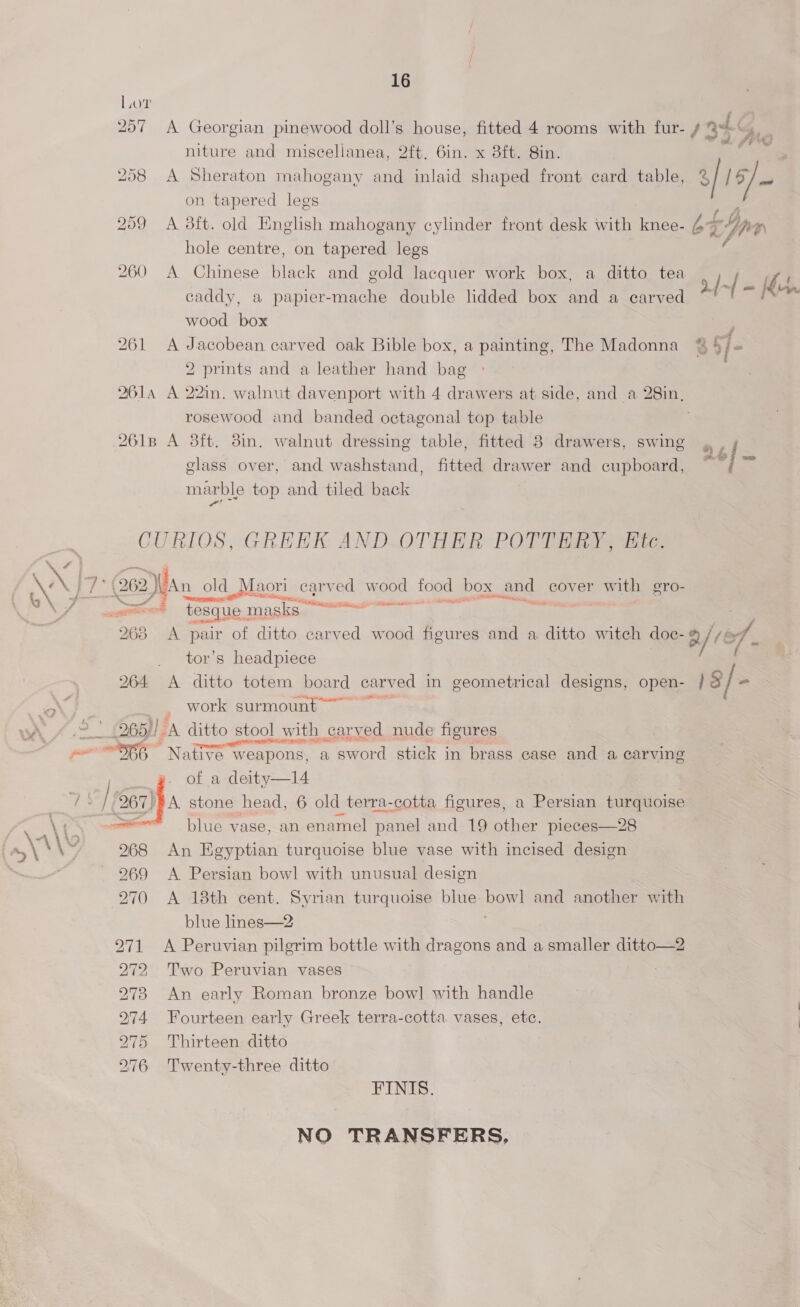 16
LOT
257 A Georgian pinewood doll's house, fitted 4 rooms with fur-
niture and miscellanea, 2ft. 6in. x 3ft. 8in.
258 A Sheraton mahogany and inlaid shaped front card table, 3/15/-
on tapered legs
259 A 3ft. old English mahogany cylinder front desk with knee-
hole centre, on tapered legs
260 A Chinese black and gold lacquer work box, a ditto tea
caddy, a papier-mache double lidded box and a carved
wood box
261 A Jacobean carved oak Bible box, a painting, The Madonna
2 prints and a leather hand bag
261A A 22in. walnut davenport with 4 drawers at side, and a 28in.
rosewood and banded octagonal top table
261B A 3ft. 3in. walnut dressing table, fitted 3 drawers, swing
glass over, and washstand, fitted drawer and cupboard,
marble top and tiled back
CURIOS, GREEK AND OTHER POTTERY, Etc.
262 An old Maori carved wood food box and cover with gro-
tesque masks
263 A pair of ditto carved wood figures and a ditto witch doc-
tor's headpiece
264 A ditto totem board carved in geometrical designs, open- 18/-
work surmount
265 A ditto stool with carved nude figures
266 Native weapons, a sword stick in brass case and a carving
of a deity—14
267 A stone head, 6 old terra-cotta figures, a Persian turquoise
blue vase, an enamel panel and 19 other pieces—28
268 An Egyptian turquoise blue vase with incised design
269 A Persian bowl with unusual design
270 A 13th cent. Syrian turquoise blue bowl and another with
blue lines—2
271 A Peruvian pilgrim bottle with dragons and a smaller ditto—2
272 Two Peruvian vases
273 An early Roman bronze bowl with handle
274 Fourteen early Greek terra-cotta vases, etc.
275 Thirteen ditto
276 Twenty-three ditto
FINIS.
NO TRANSFERS.